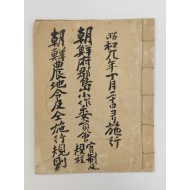 昭和九年十月二十日ヨリ施行
朝鮮府郡島小作委員會官制及規程
朝鮮農地令及仝施行規則